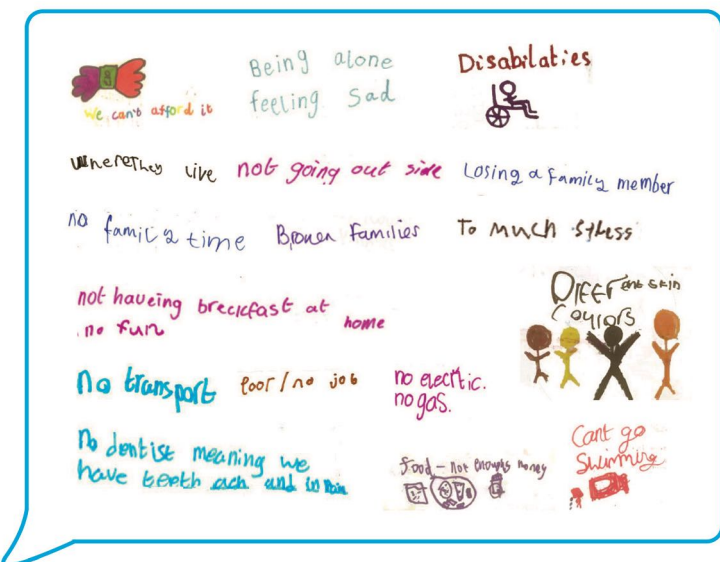 We can't afford it
Being alone
feeling sad
Disabilaties
Where They live
not going out side
Losing a family member
no family time
Broken Families
To much stress
not haveing breckfast at home
no fun
Different skin
Coulors
No transport
Poor / no job
no electric.
no gas.
No dentist meaning we
have teeth ach and in Pain
food - not enough money
Cant go
Swimming